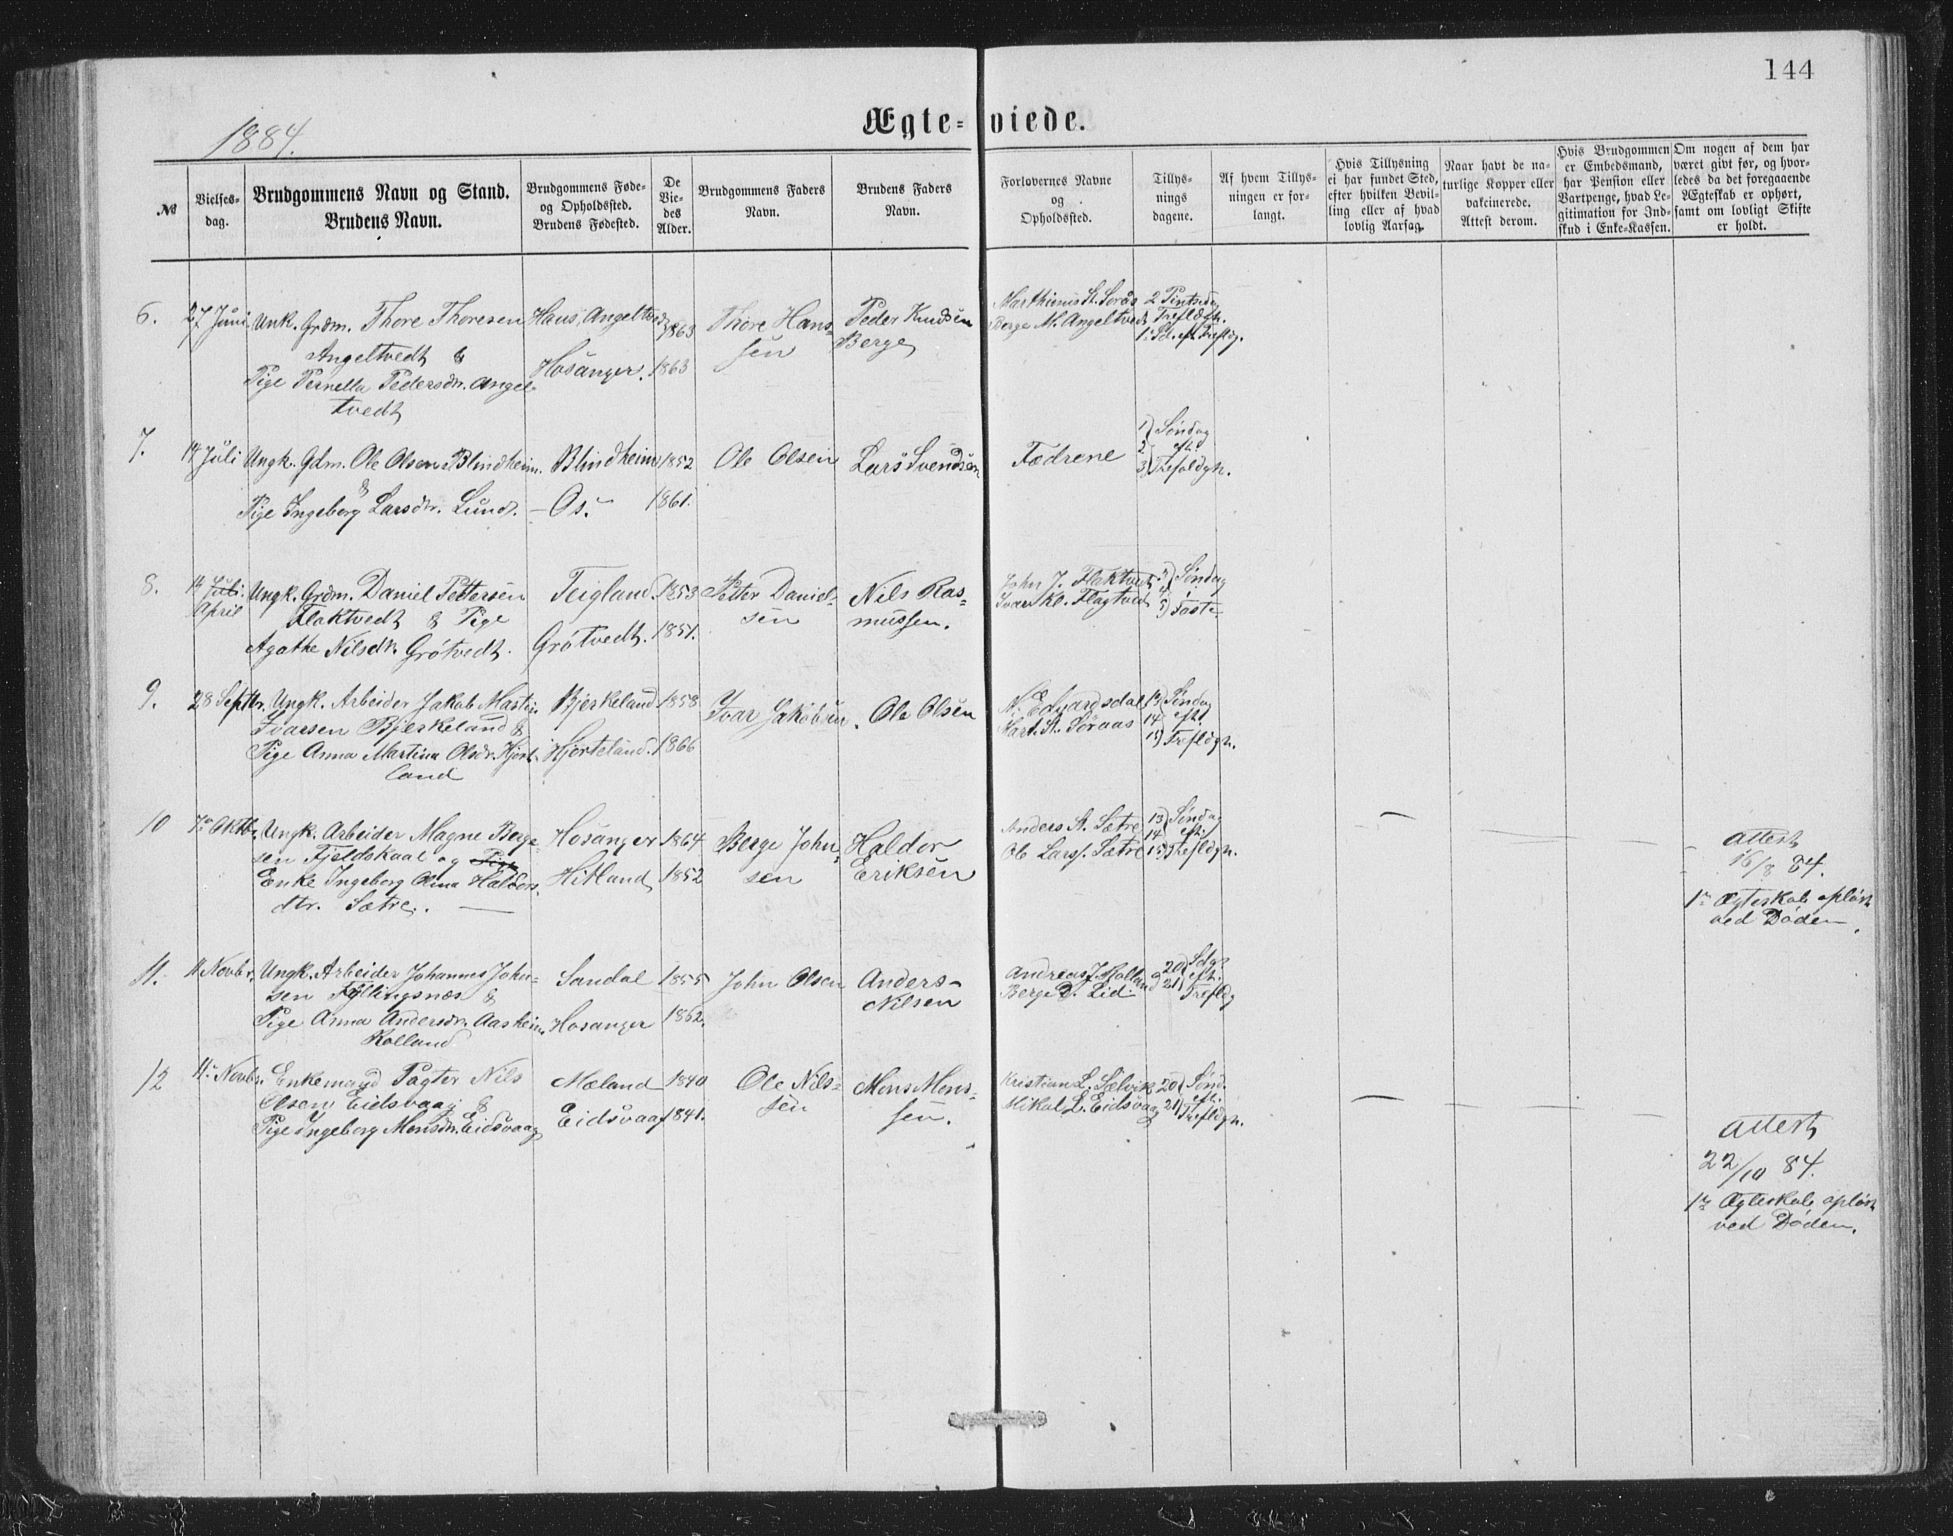 144
1884.
Ægte-viede.
№
Vielses-
dag.
Brudgommens Navn og Stand.
Brudens Navn.
Brudgommens Føde-
og Opholdssted.
Brudens Fødested.
De
Vie-
des
Alder.
Brudgommens Faders
Navn.
Brudens Faders
Navn.
Forlovernes Navne
og
Opholdssted.
Tillys-
nings
dagene.
Af hvem Tillys-
ningen er for-
langt.
Hvis Tillysning
ei har fundet Sted,
efter hvilken Bevil-
ling eller af hvad
lovlig Aarsag.
Naar havt de na-
turlige Kopper eller
vakcinerede.
Attest derom.
Hvis Brudgommen
er Embedsmand,
har Pension eller
Vartpenge, hvad Le-
gitimation for Ind-
skud i Enke-Kassen.
Om nogen af dem har
været givt før, og hvor-
ledes da det foregaaende
Ægteskab er ophørt,
samt om lovligt Skifte
er holdt.
6.
27 Juni
Unk. Grdm. Thore Thoresen
Angeltvedt &
Pige Pernella Pedersdr. Angel-
tvedt
Haus, Angeltvedt
Hosanger.
1863
1863
Thore Hans-
sen
Peder Knudsen
Berge
Marthinus St. Sorås
Børge M. Angeltvedt
2 Pintsedag
Trefldgh.
1ᵉ Sd. eft. Trefldg.
7.
14 Juli
Ungk. Gdm. Ole Olsen Blindheim.
&
Pige Ingeborg Larsdtr. Lund.
Blindheim
– Os. –
1852
1861.
Ole Olsen
Lars Svendsen
Fædrene
1) Søndag
2 eft.
3) Trefoldgh.
8.
14 Juli
April
Ungk. Grdm. Daniel Pettersen
Flaktvedt & Pige
Agathe Nilsdr. Grøtvedt.
Teigland.
Grøtvedt.
1853
1851.
Petter Daniel-
sen
Nils Ras-
mussen.
John J. Flaktvedt
Ivar Kl. Flagtvedt
3) Søndag
4 i
5) Faste
9.
28 Septbr.
Ungk. Arbeider Jakob Martin
Ivarsen Bjerkeland &
Pige Anna Martina Olsdr. Hjort-
land
Bjerkeland
Hjorteland.
1858
1866
Ivar Jakobsen.
Ole Olsen
N. Edvardsdal
Mart. St. Søraas
13) Søndag
14 eft.
15) Trefldgh.
10
7ᵈᵉ Oktbr.
Ungk. Arbeider Magne Berge-
sen Fjeldskaal og Pige
Enke Ingeborg Olina Haldors-
dtr. Sætre. –
Hosanger
Hitland
1864
1852
Berge John-
sen
Haldor
Eriksen
Anders A. Sætre
Ole Larss. Sætre
13) Søndag
14 eft.
15) Trefldgh.
Attest
16/8 84.
1ᵉ Ægteskab opløst
ved Døden.
11.
11 Novbr.
Ungk. Arbeider Johannes John-
sen Fyllingsnæs &
Pige Anna Andersdr. Aasheim
Kolland
Sandal
Hosanger
1855
1862.
John Olsen
Anders
Nilsen
Andreas J. Kolland
Berge D. Lid.
20) Sdg.
eft.
21) Trefldg
12
11ᵗᵉ Novbr.
Enkemand Pagter Nils
Olsen Eidsvaag &
Pige Ingeborg Monsdr. Eidsvaag
Mæland
Eidsvaag
1840
1841.
Ole Nils-
sen
Mons Mons-
sen.
Kristian L. Sælevik
Mikal L. Eidsvaag
20) Sønd.
eft.
21) Trefldgh.
Attest
22/10 84.
1ᵉ Ægteskab opløst
ved Døden.